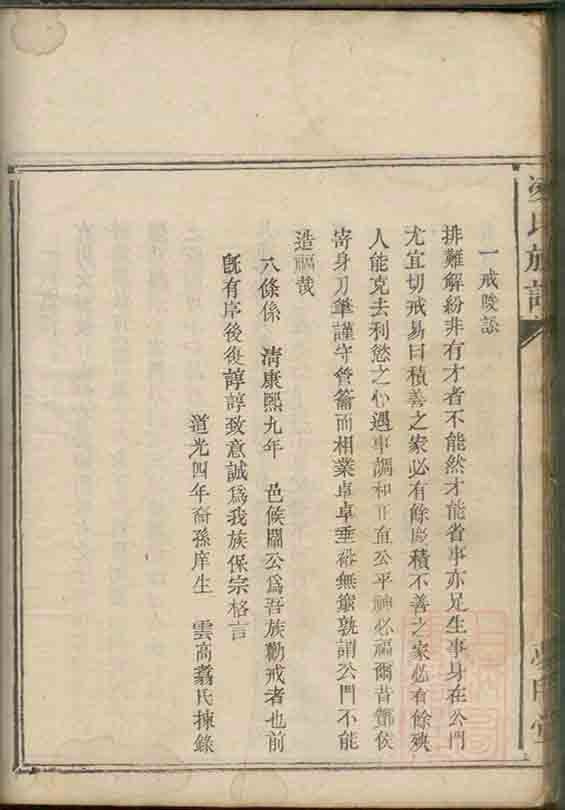 一戒唆訟
排難解紛非有才者不能然才能省事亦足生事身在公門
尤宜切戒易曰積善之家必有餘慶積不善之家必有餘殃
人能克去利慾之心遇事調和正直公平神必福爾昔酇侯
寄身刀筆謹守管籥而相業卓卓垂裕無窮孰謂公門不能
造福哉
八條係 清康熙九年 邑侯關公為吾族勸戒者也前
旣有序後復諄諄致意誠爲我族保宗格言
道光四年裔孫庠生 雲高翥氏揀錄
氏族譜